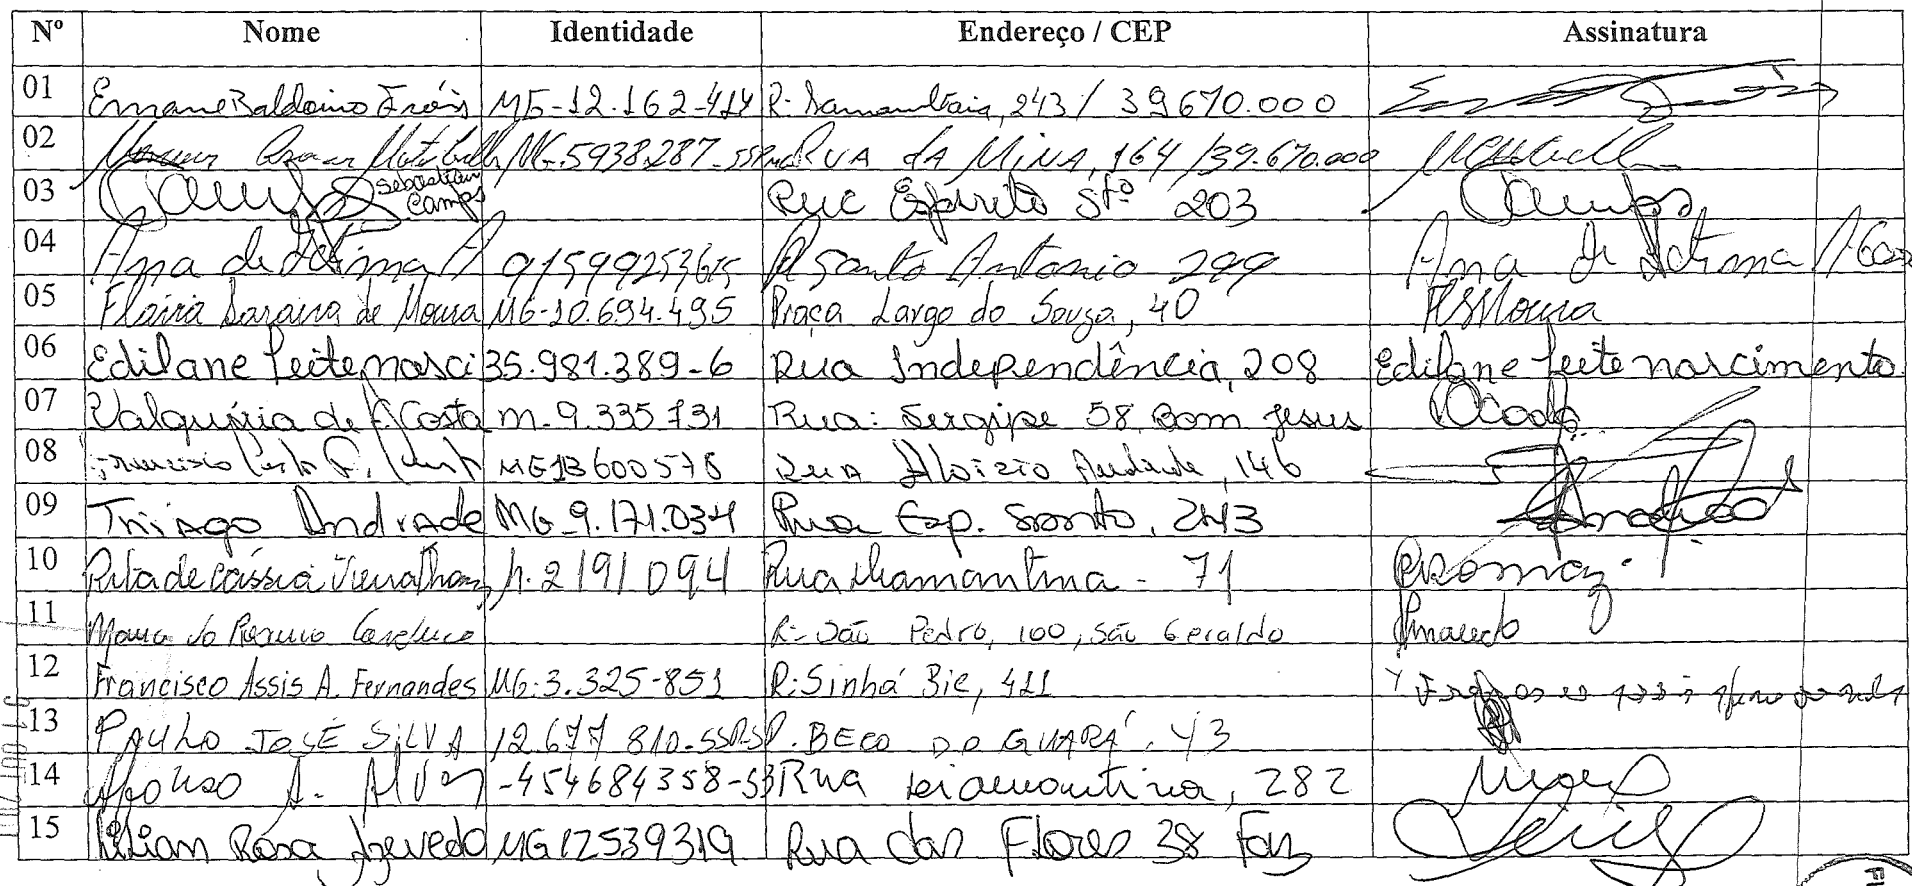 Nº Nome Identidade Endereço / CEP Assinatura
01 Ernane Baldoino Fróis MG-12.162-414 R: Samambaia, 243 / 39670.000
02 MG.5938.287-SSP RUA DA MINA, 164 /39.670.000
03 Sebastian Camps Rua Espirito Stº 203 Camps
04 Ana de Fátima A 91599253615 R Santo Antonio 299 Ana de Fátima
05 Flávia Saraiva de Moura MG-10.694.495 Praça Largo do Souza, 40 FSMoura
06 Edilane Leite nasci 35.981.389-6 Rua Independência, 208 Edilane Leite nascimento
07 Valquíria de F. Costa M-9.335.731 Rua: Sergipe 58 Bom Jesus
08 MG13600576 RUA Aloizio Andrade, 146
09 Thiago Andrade MG-9.171.034 Rua Esp. Santo, 243
10 Rita de Cássia Viana Thomaz M.2191094 Rua Diamantina - 71
11 Maria do Rosario R: São Pedro, 100, São Geraldo
12 Francisco Assis A. Fernandes MG:3.325-851 R: Sinhá Bié, 411
13 PAULO JOSÉ SILVA 12.677 810-SSP.SP R. BECO DO GUARÁ. 43
14 Afonso A. Alves -454684358- Rua Diamantina, 282
15 Lilian Rosa Azevedo MG12539319 Rua das Flores 38